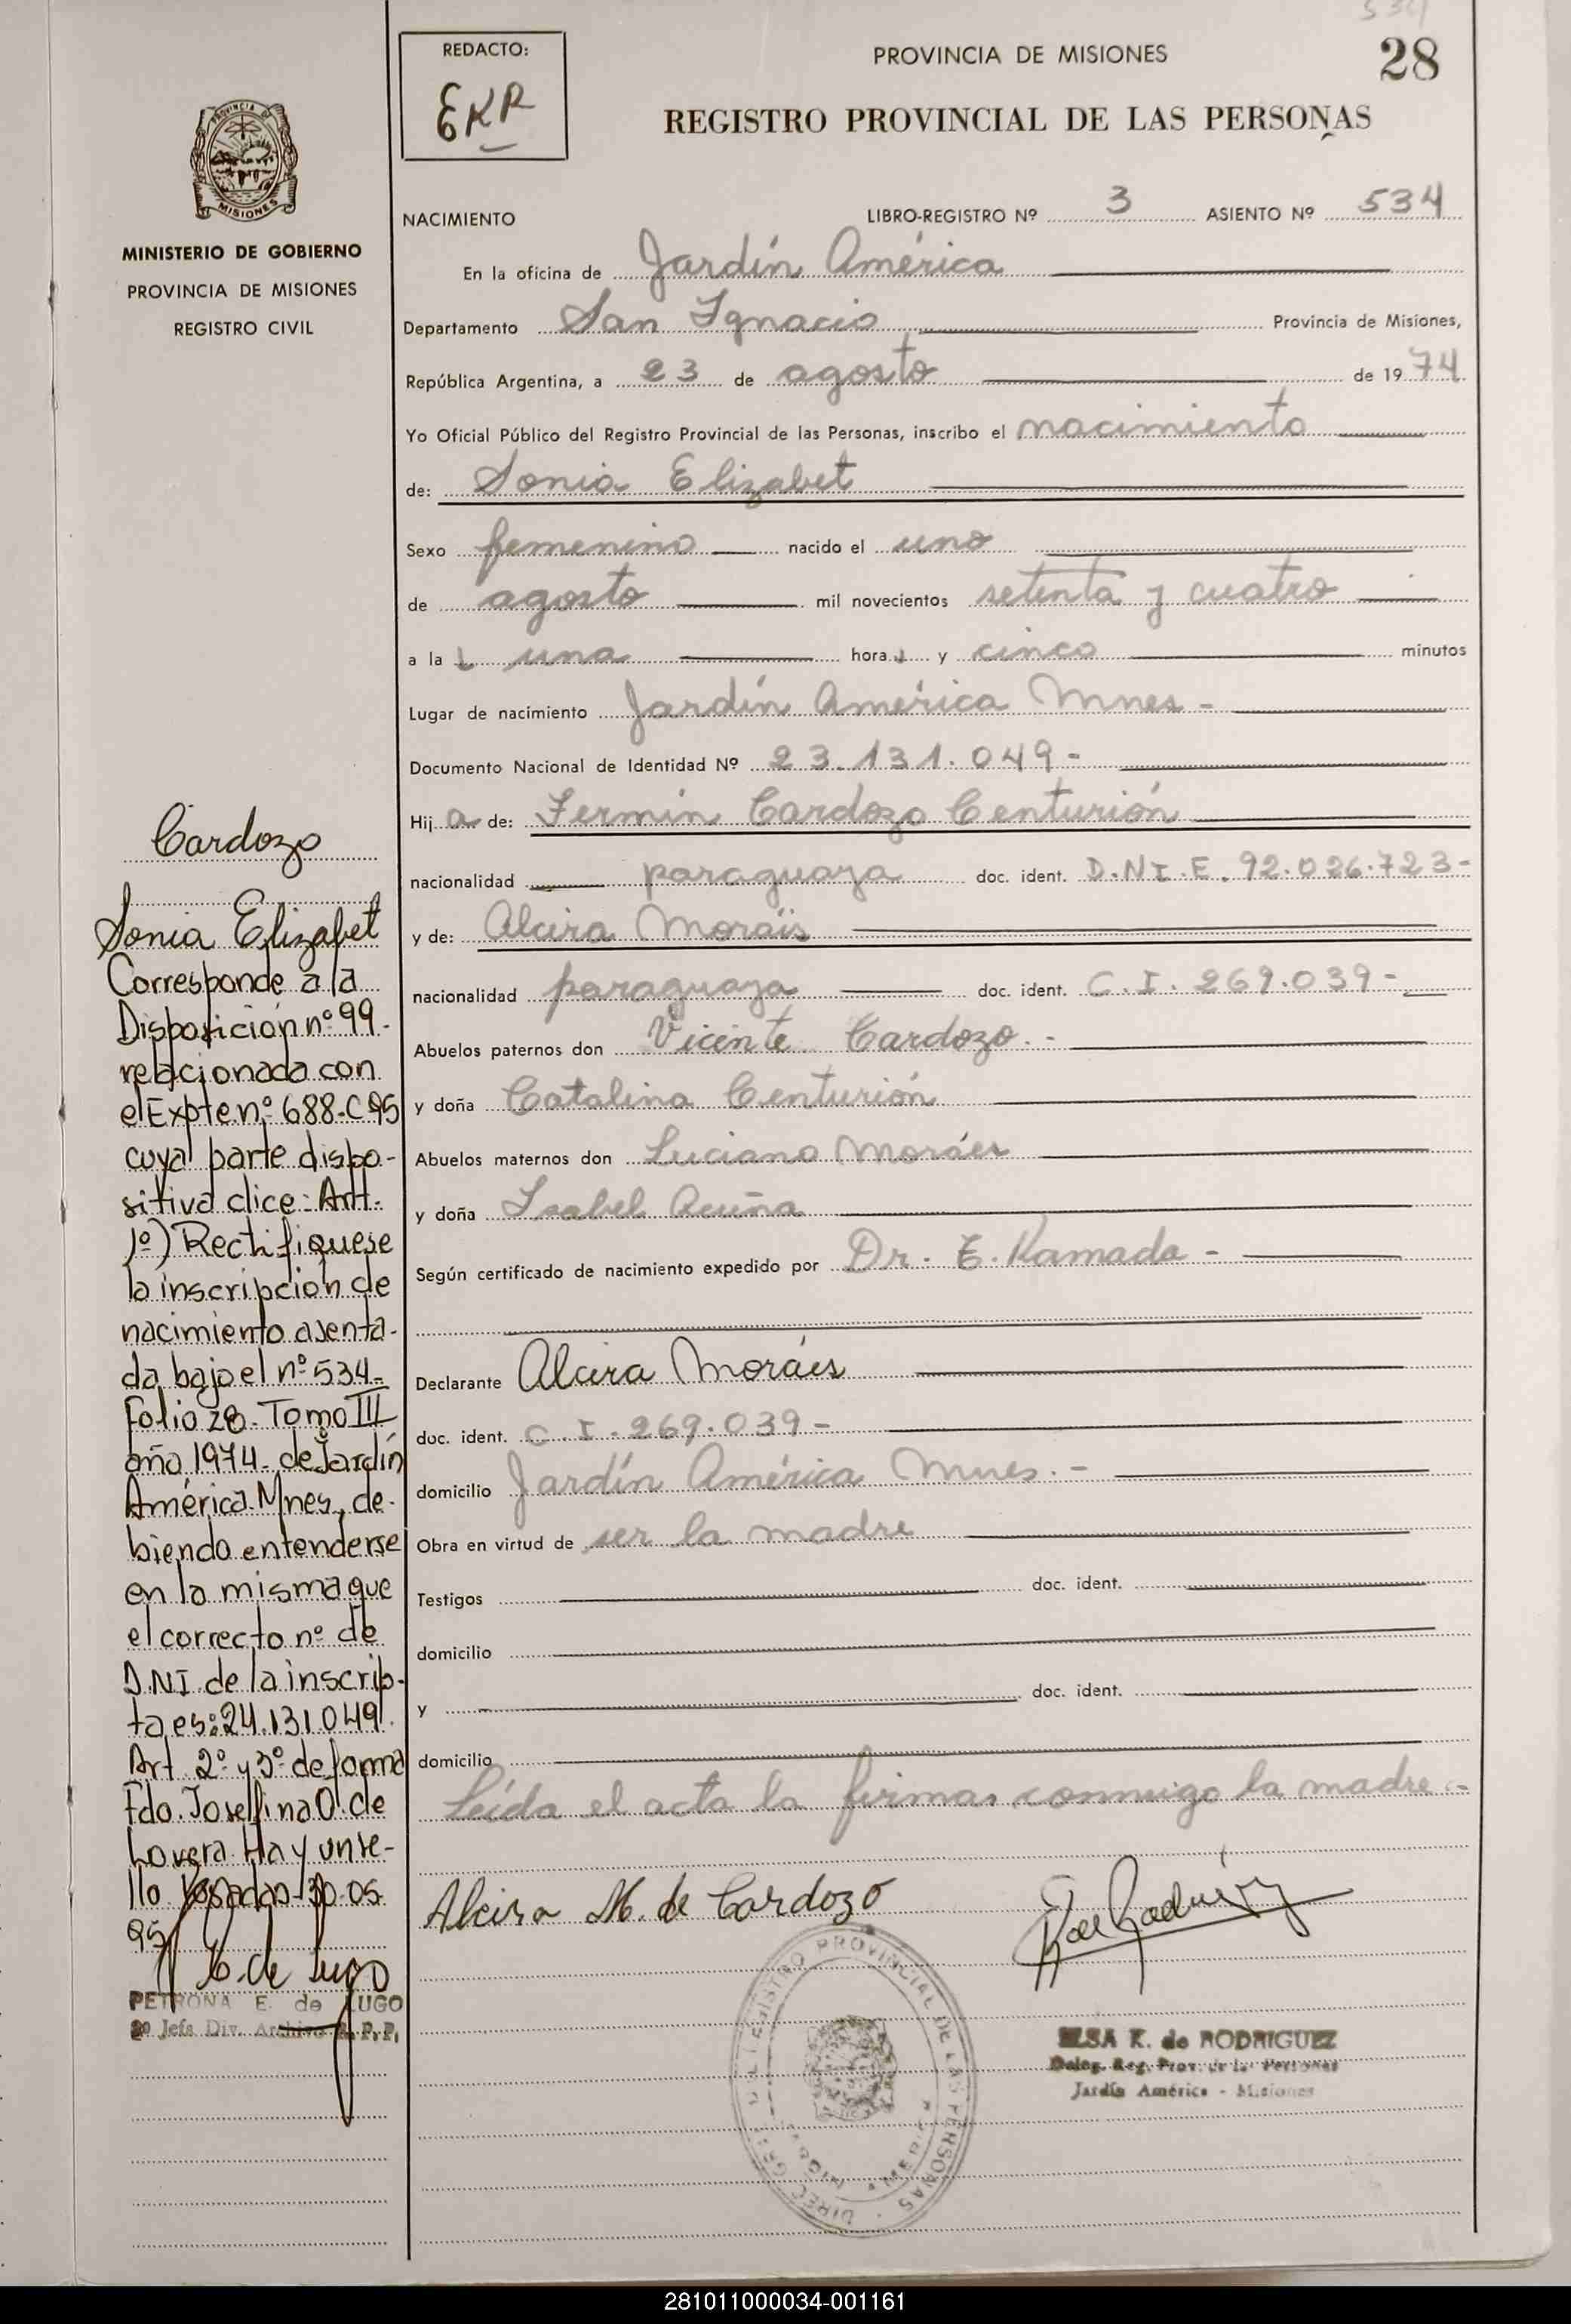 534
28
REDACTO:
EKR
PROVINCIA DE MISIONES
REGISTRO PROVINCIAL DE LAS PERSONAS
PROVINCIA DE
MISIONES
MINISTERIO DE GOBIERNO
PROVINCIA DE MISIONES
REGISTRO CIVIL
NACIMIENTO LIBRO-REGISTRO Nº 3 ASIENTO Nº 534
En la oficina de Jardín América
Departamento San Ignacio Provincia de Misiones,
República Argentina, a 23 de agosto de 1974
Yo Oficial Público del Registro Provincial de las Personas, inscribo el nacimiento
de: Sonia Elizabet
Sexo femenino nacido el uno
de agosto mil novecientos setenta y cuatro
a la una hora y cinco minutos
Lugar de nacimiento Jardín América Mnes -
Documento Nacional de Identidad Nº 23.131.049-
Hija de: Fermín Cardozo Centurión
nacionalidad paraguaya doc. ident. D.N.I.E. 92.026.723-
y de: Alcira Moráis
nacionalidad paraguaya doc. ident. C.I. 269.039-
Abuelos paternos don Vicente Cardozo.-
y doña Catalina Centurión
Abuelos maternos don Luciano Moráes
y doña Isabel Acuña
Según certificado de nacimiento expedido por Dr. E. Kamada -
Declarante Alcira Moráes
doc. ident. C.I. 269.039-
domicilio Jardín América Mnes.-
Obra en virtud de ser la madre
Testigos doc. ident.
domicilio
y doc. ident.
domicilio
Leída el acta la firman conmigo la madre.-
Alcira M. de Cardozo
ELSA K. de RODRIGUEZ
Deleg. Reg. Prov. de las Personas
Jardín América - Misiones
REGISTRO PROVINCIAL DE LAS PERSONAS
Cardozo
Sonia Elizabet
Corresponde a la
Disposición nº 99-
relacionada con
el Expte. nº 688-C95
cuya parte dispo-
sitiva dice: Art.
1º) Rectifiquese
la inscripción de
nacimiento asenta-
da bajo el nº 534-
Folio 28- Tomo III
año 1974- de Jardín
América. Mnes, de-
biendo entenderse
en la misma que
el correcto nº de
D.N.I. de la inscrip-
ta es: 24.131.049.
Art. 2º y 3º de forma
Fdo. Josefina O. de
Lovera. Hay un se-
llo Posadas-30-05-
95
P. de Lugo
PETRONA E. de LUGO
2º Jefa Div. Archivo R. P. P.
281011000034-001161